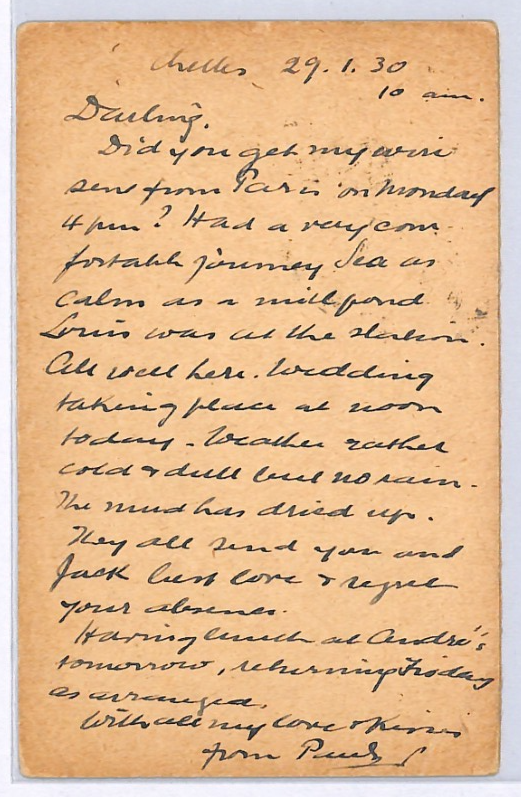 Chelles 29.1.30
10 am.
Darling,
Did you get my wire
sent from Paris on Monday
4 pm? Had a very com
fortable journey Sea as
calm as a millpond
Louis was at the station.
All well here. Wedding
taking place at noon
today - Weather rather
cold & dull but no rain.
The mud has dried up.
They all send you and
Jack best love & regret
your absence.
Having lunch at André's
tomorrow, returning Friday
as arranged.
With all my love & kisses
from